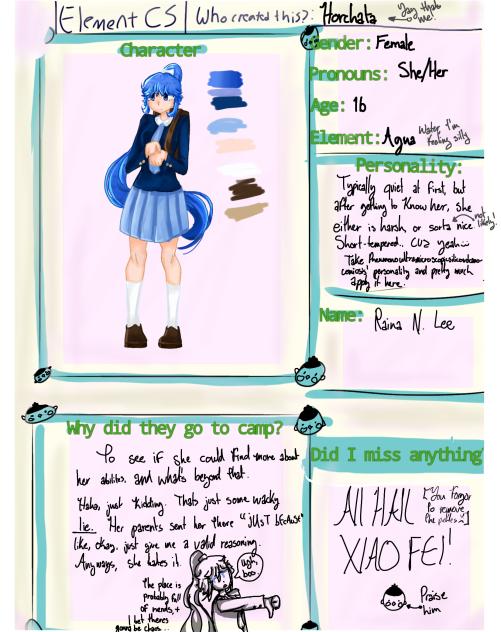 Element CS | Who created this?: Horchata
Yay thats me!
Character
Gender: Female
Pronouns: She/Her
Age: 16
Element: Agua
Water I'm
feeling silly
Personality:
Typically quiet at first, but
after getting to know her, she
either is harsh, or sorta nice.
not likely!
Short-tempered.. cuz yeah
Take
personality and pretty much
apply it here.
Name: Raina N. Lee
Why did they go to camp?
To see if she could find more about
her abilites, and what's beyond that.
Haha, just kidding. Thats just some wacky
lie. Her parents sent her there "jUsT bEcAuSe"
like, okay. just give me a valid reasoning.
Anyways, she hates it.
The place is
probably full
of nerds, +
I bet theres
gonna be chaos...
Ugh,
boo
Did I miss anything
All HAIL
XIAO FEI!
[You forgot
to remove
the
Praise
him